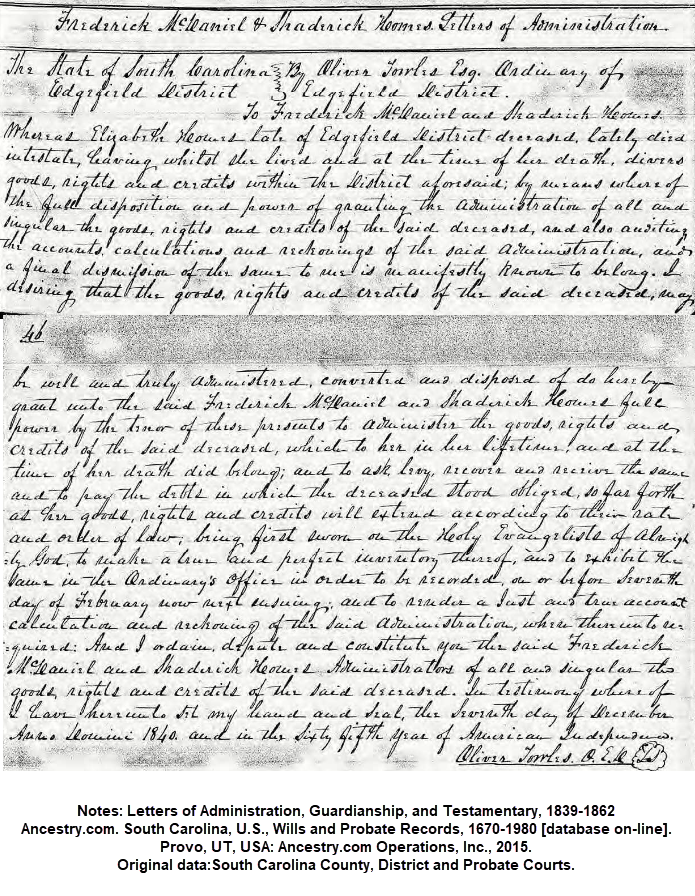 Frederick McDaniel & Shaderick Homes. Letters of Administration.
The State of South Carolina } By Oliver Towles Esq. Ordinary of
Edgefield District } Edgefield District.
To Frederick McDaniel and Shaderick Homes.
Whereas Elizabeth Homes late of Edgefield District deceased, lately died
intestate, leaving whilst she lived and at the time of her death, divers
goods, rights and credits within the District aforesaid, by means where of
the full disposition and power of granting the administration of all and
singular the goods, rights and credits of the said deceased, and also auditing
the accounts, calculations and reckonings of the said administration, and
a final dismission of the same to me is manifestly known to belong. I
desiring that the goods, rights and credits of the said deceased, may
46
be well and truly administered, converted and disposed of do hereby
grant unto the said Frederick McDaniel and Shaderick Homes full
power by the tenor of these presents to administer the goods, rights and
credits of the said deceased, which to her in her lifetime, and at the
time of her death did belong; and to ask, levy, recover and receive the same
and to pay the debts in which the deceased stood obliged, so far forth
as her goods, rights and credits will extend according to their rate
and order of law; being first sworn on the Holy Evangelists of Almigh
-ty God, to make a true and perfect inventory thereof, and to exhibit the
same in the Ordinary's Office in order to be recorded, on or before Seventh
day of February now next ensuing; and to render a Just and true account
calculation and reckoning of the said administration, when thereunto re-
=quired: And I ordain, depute and constitute you the said Frederick
McDaniel and Shaderick Homes Administrators of all and singular the
goods, rights and credits of the said deceased. In testimony where of
I have hereunto set my hand and seal, the Seventh day of December
Anno Domini 1840. and in the Sixty fifth year of American Independence.
Oliver Towles. O. E. D.
Notes: Letters of Administration, Guardianship, and Testamentary, 1839-1862
Ancestry.com. South Carolina, U.S., Wills and Probate Records, 1670-1980 [database on-line].
Provo, UT, USA: Ancestry.com Operations, Inc., 2015.
Original data:South Carolina County, District and Probate Courts.